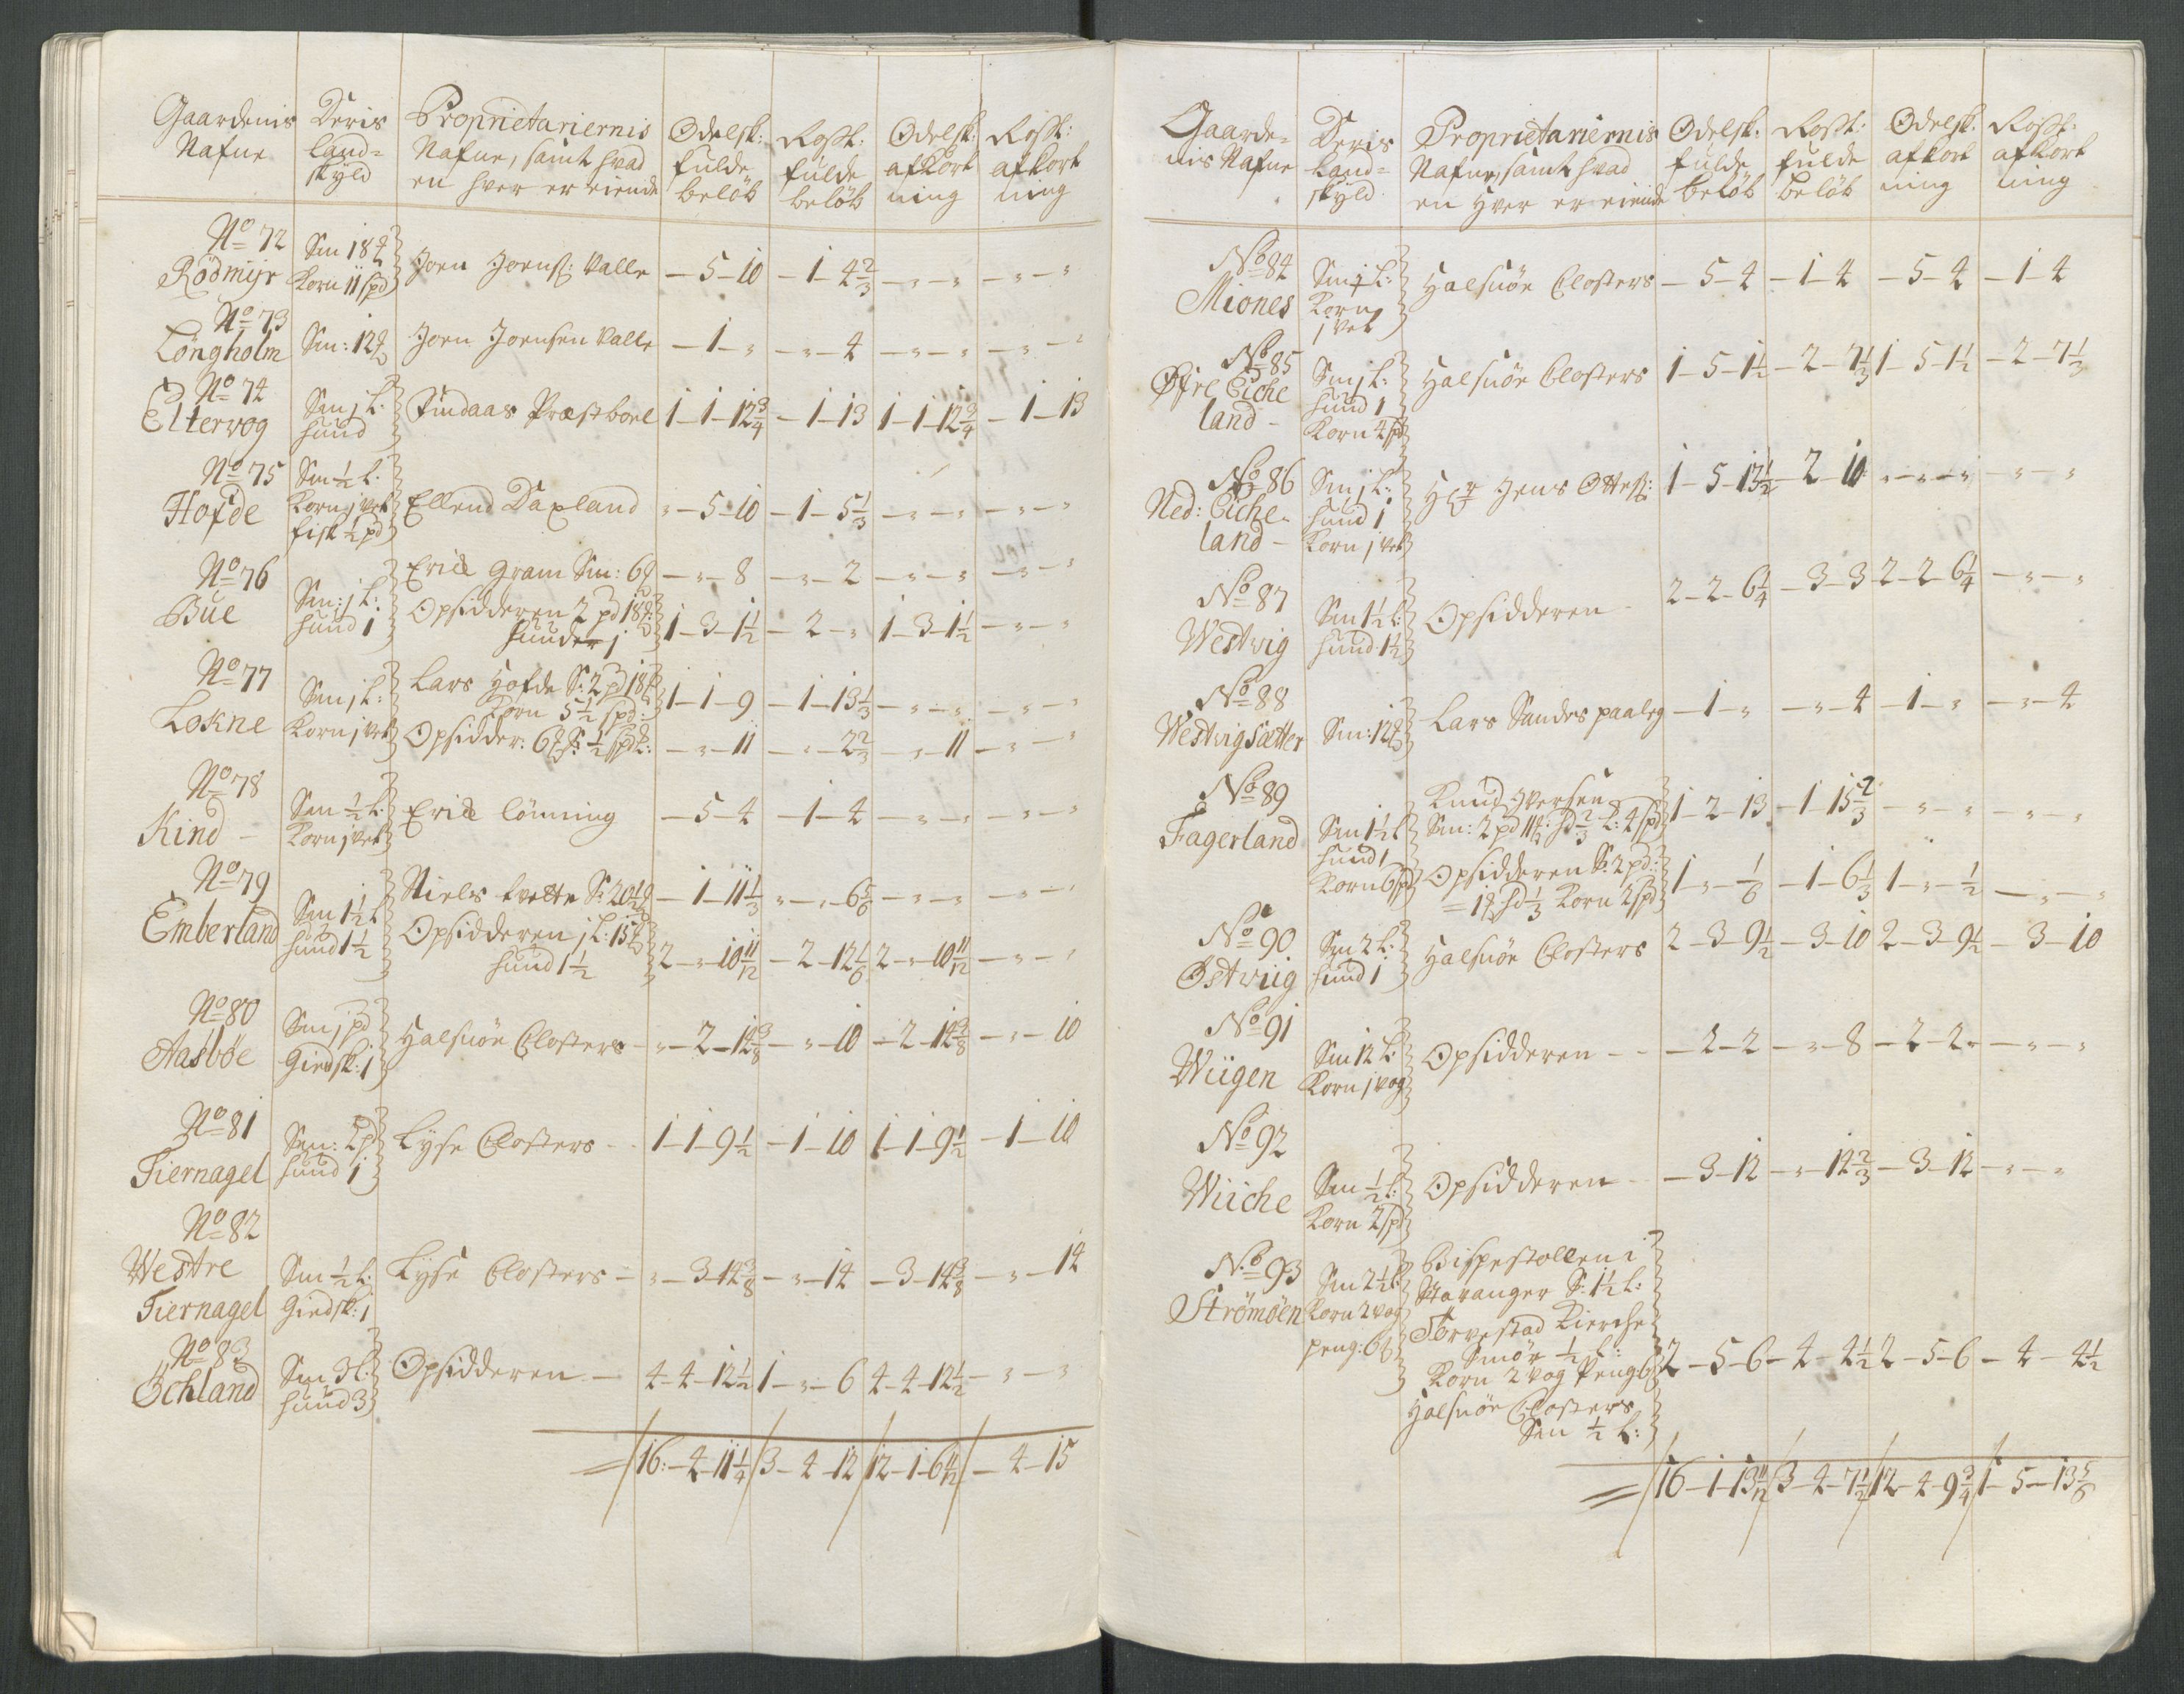 Gaardenis Nafne | Deris Land= skÿld | Proprietariernis Nafne, samt hvad en hver er eiende | Odelsk: fulde beløb | Rostk: fulde beløb | Odelsk: afkort ning | Rostk: afkort ning
No 72 Rödmÿr | Sm 18 Korn 11 spd | Joen Joens: Valle | – 5 – 10 | – 1 – 4 2/3 | – „ – „ | – „ – „
No 73 Löngholm | Sm: 12 | Joen Joensen Valle | – 1 – „ | – „ – 4 | – „ – „ | – „ – „
No 74 Eltervog | Sm j L: hund | Findaas Præstboel | 1 – 1 – 12 3/4 | – 1 – 13 | 1 – 1 – 12 3/4 | – 1 – 13
No 75 Hofde | Sm 1/2 L. Korn j vet fisk 1/2 pd | Ellend Daxland | „ – 5 – 10 | – 1 – 5 1/3 | – „ – „ | – „ – „
No 76 Büe | Sm: j L: hund 1 | Erick Gram Sm: 6 | – „ – 8 | – „ – 2 | – „ – „ | – „ – „
Opsidderen 2 pd 18 hunder j | 1 – 3 – 1 1/2 | – 2 – „ | 1 – 3 – 1 1/2 | – „ – „
No 77 Lokne | Sm j L: Korn j vet | Lars Hofde S: 2 pd 18 Korn 5 1/2 spd: | 1 – 1 – 9 | – 1 – 13 1/3 | – „ – „ | – „ – „
Opsidder: 6 1/2 spd: | – „ – 11 | – „ – 2 2/3 | – „ 11 | – „ – „
No 78 Kind – | Sm 1/2 L. Korn j vet | Erick Lönning | – 5 – 4 | – 1 – 4 | – „ – „ | – „ – „
No 79 Emberland | Sm 1 1/2 L hund 1 1/2 | Niels tvette S: 20 1/2 | – 1 – 11 1/3 | „ – „ 6 5/6 | – „ – „ | – „ – „
Opsidderen j L: 15 hund 1 1/2 | 2 – „ – 10 11/12 | – 2 – 12 1/6 | 2 – „ – 10 11/12 | – „ – „
No 80 Aasböe | Sm j pd Giedsk: 1 | Halsnöe Closters – | „ – 2 – 14 3/8 | – „ – 10 | – 2 – 14 3/8 | – „ – 10
No 81 Tiernagel | Sm: 2 p hund 1 | Lÿse Closters – | 1 – 1 – 9 1/2 | – 1 – 10 | 1 – 1 – 9 1/2 | – 1 – 10
No 82 Westre Tiernagel | Sm 1/2 L: Giedsk: 1 | Lÿse Closters – | „ – 3 – 14 3/8 | – „ – 14 | – 3 – 14 3/8 | – „ – 14
No 83 Öchland | Sm 3 L: hund 3 | Opsidderen – | 4 – 4 – 12 1/2 | 1 – „ – 6 | 4 – 4 – 12 1/2 | – „ – „
= | 16: – 4 – 11 1/4 | 3 – 4 – 12 | 12 – 1 – 6 11/12 | – 4 – 15
Gaarde= nis Nafne | Deris Land= skÿld | Proprietariernis Nafne, samt hvad en Hver er eiende | Odelsk: fulde beløb | Rostk: fulde beløb | Odelsk: afkort ning | Rostk: afkort ning
No 84 Miones | Sm j L: Korn j vet | Halsnöe Closters | – 5 – 4 | – 1 – 4 | – 5 – 4 | – 1 – 4
No 85 Øfre Eiche land – | Sm j L: hund 1 Korn 4 spd | Halsnöe Closters | 1 – 5 – 1 1/2 | – 2 – 7 1/3 | 1 – 5 – 1 1/2 | – 2 – 7 1/3
No 86 Ned: Eiche= land – | Sm j L: hund 1 Korn j vet | Hr Jens Ottes: | 1 – 5 – 13 1/2 | – 2 – 10 | „ – „ – „ | – „ – „
No 87 Westvig | Sm 1 1/2 L: hund 1 1/2 | Opsidderen – | 2 – 2 – 6 1/4 | – 3 – 3 | 2 – 2 – 6 1/4 | – „ – „
No 88 Westvigsætter | Sm: 12 | Lars Sandes paaleg | – 1 – „ | – „ – 4 | – 1 – „ | – „ – 4
No 89 Fagerland | Sm 1 1/2 L hund 1 Korn 6 spd | Knud Iversen Sm: 2 pd 11 : hd 2/3 L: 4 spd | 1 – 2 – 13 | – 1 – 15 2/3 | – „ – „ | – „ – „
Opsidderen S: 2 pd: = 19 hd 1/3 Korn 2 spd | 1 – „ – 1/6 | – 1 – 6 1/3 | 1 – „ – 1/2 | – „ – „
No 90 Östviig | Sm 2 L: hund 1 | Halsnöe Closters | 2 – 3 – 9 1/2 | – 3 – 10 | 2 – 3 – 9 1/2 | – 3 – 10
No 91 Wiigen | Sm 12 L: Korn j vog | Opsidderen – – | – 2 – 2 | – „ – 8 | – 2 – 2 „ | – „ – „
No 92 Wiiche | Sm 1/2 L: Korn 2 spd | Opsidderen – | – 3 – 12 | – „ – 14 2/3 | – 3 – 12 | – „ – „
No 93 Strömöen | Sm 2 1/2 L: Korn 2 vog peng: 6 | Bispestollen i Stavanger S: 1 1/2 L:
Torvestad Kierche Smör 1/2 L: Korn 2 vog Peng 6 | 2 – 5 – 6 | – 4 – 4 1/2 | 2 – 5 – 6 | – 4 – 4 1/2
Halsnöe Closters Sm 1/2 L:
= | 16 – 1 – 13 11/12 | 3 – 4 – 7 1/2 | 12 – 4 – 9 3/4 | 1 – 5 – 13 5/6